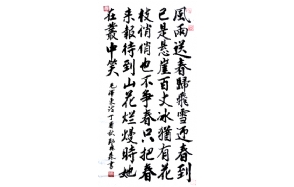 風雨送春歸飛雪迎春到
已是懸崖百丈冰猶有花
枝俏俏也不爭春只把春
来報待到山花烂熳時她
在叢中笑